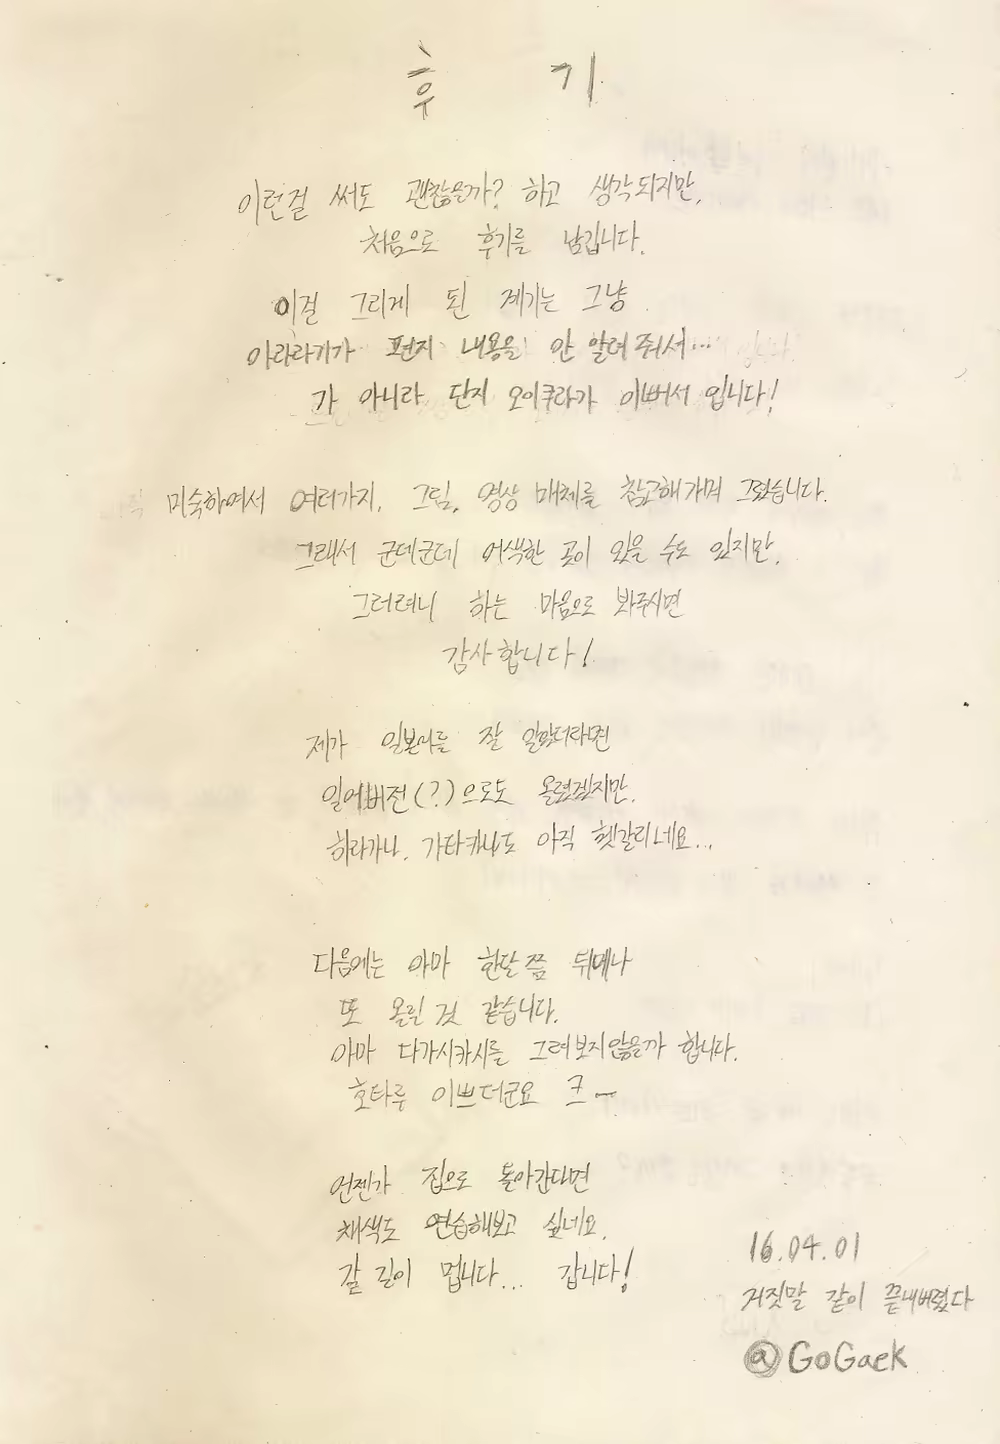 후 기
이런걸 써도 괜찮을까? 하고 생각되지만,
처음으로 후기를 남깁니다.
이걸 그리게 된 계기는 그냥
아라라기가 편지 내용을 안 알려줘서...
가 아니라 단지 오이쿠라가 이뻐서 입니다!
미숙하여서 여러가지, 그림, 영상 매체를 참고해가며 그렸습니다.
그래서 군데군데 어색한 곳이 있을 수도 있지만,
그러려니 하는 마음으로 봐주시면
감사합니다!
제가 일본어를 잘 알았더라면
일어버전(?)으로도 올렸겠지만,
히라가나, 가타카나도 아직 헷갈리네요...
다음에는 아마 한달쯤 뒤에나
또 올릴 것 같습니다.
아마 다가시카시를 그려보지않을까 합니다.
호타루 이쁘더군요 크...
언젠가 집으로 돌아간다면
채색도 연습해보고 싶네요.
갈 길이 멉니다... 갑니다!
16.04.01
거짓말 같이 끝내버렸다
@GoGaek